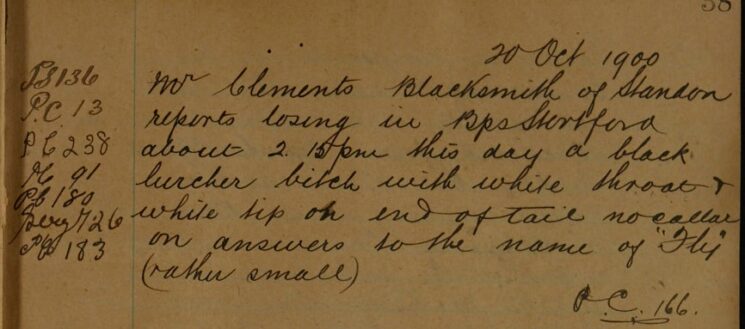 58
20 Oct 1900
PS 136
P.C 13
PC 238
PC 91
PC 180
Serg 726
PC 183
Mr Clements Blacksmith of Standon
reports losing in Bps Stortford
about 2.15pm this day a black
lurcher bitch with white throat &
white tip on end of tail no collar
on answers to the name of "Fly"
(rather small)
P.C. 166.